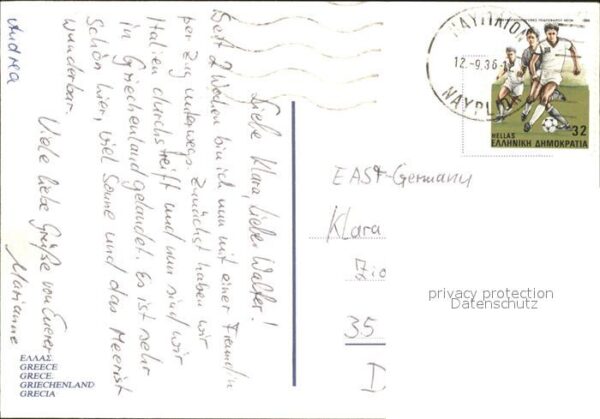 Liebe Klara, lieber Walter!
Seit 2 Wochen bin ich nun mit einer Freundin
per Zug unterwegs. Zunächst haben wir
Italien durchstreift und nun sind wir
in Griechenland gelandet. Es ist sehr
schön hier, viel Sonne und das Meer ist
wunderbar.
Viele liebe Grüße von Eurer
Marianne
Andrea
ΕΛΛΑΣ
GREECE
GRECE
GRIECHENLAND
GRECIA
ΝΑΥΠΛΙΟΝ
12.-9.86-1
NAYPLION
HELLAS
32
ΕΛΛΗΝΙΚΗ ΔΗΜΟΚΡΑΤΙΑ
EAST-Germany
Klara
35
privacy protection
Datenschutz